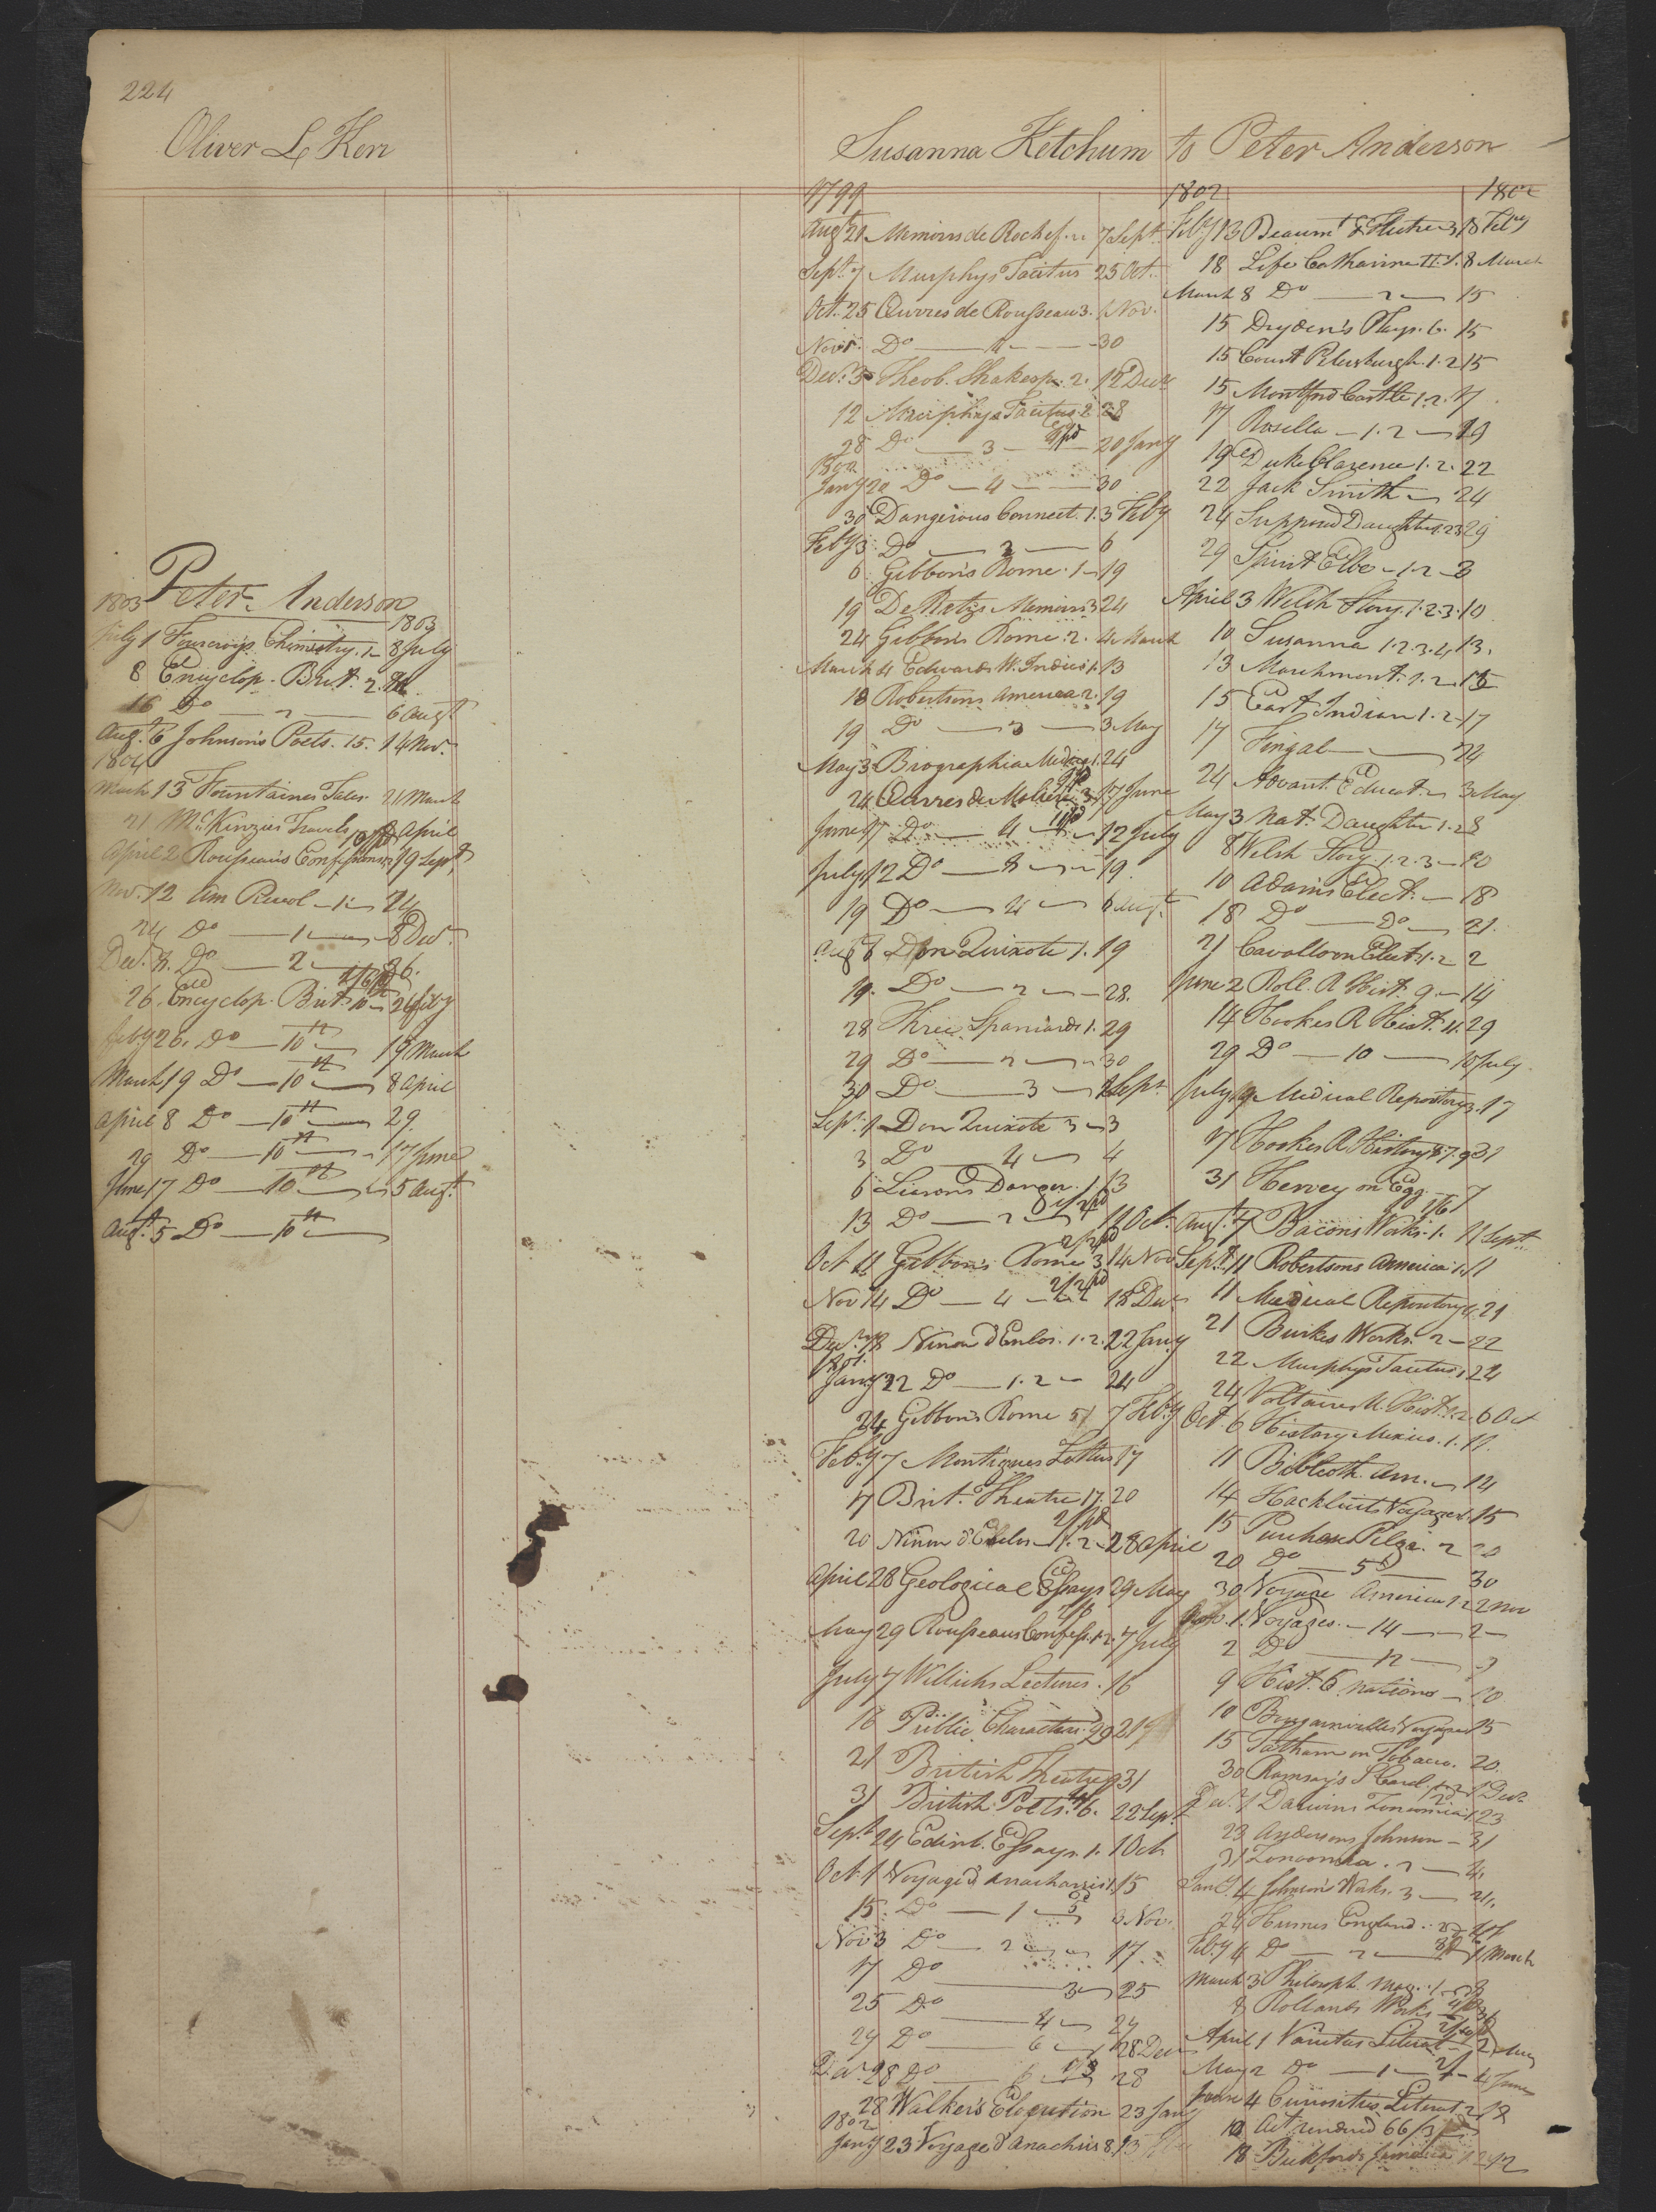 224
Oliver L Ker
Peter Anderson
1803 1803
July 1 Fourcroy's Chimistry. 1 8 July
8 Encyclop. Brit. 2.
16 Do 2 6 Augt
Augt. 6 Johnson's Poets. 15. 14 Nov.
1804
March 13 Fountaines Tales. 21 March
21 McKinzies Travels April
April 2 Rousseau's Confessions 19 Sept
Nov. 12 Am Revol 1 24
24 Do 1 8 Decr.
Decr. 8. Do 2 26.
26. Encyclop. Brit. 10 26 feby
feby 26. Do 10 19 March
March 19 Do 10 8 April
April 8 Do 10 29
29 Do 10 17 June
June 17 Do 10 5 Augt.
Augt. 5 Do 10
Susanna Ketchum to Peter Anderson
1799
Augt 21 Memoirs de Rochef. 7 Sept.
Sept. 7 Murphys Tacitus 25 Oct.
Oct. 25 Œuvres de Rousseau 3. Nov.
Novr. Do 4 30
Decr. 3 Theob. Shakesp. 2. 12 Decr
12 Murphys Tacitus 2 28
28 Do 3 20 Jany
1800
Jany 20 Do 4 30
30 Dangerous Connect. 1. 3 Feby
Feby 3 Do 2 6
6 Gibbon's Rome 1 19
19 De Retz's Memoirs 3 24
24 Gibbon's Rome 2. 4 March
March 4 Edwards W. Indies 1. 13
13 Robertsons America 2. 19
19 Do 3 3 May
May 3 Biographia Medica 1. 24
24 Œuvres de Moliere 3 17 June
June 17 Do 4 12 July
July 12 Do 19.
19 Do 4 6 Augt.
Aug 6 Don Quixote 1. 19
19. Do 2 28.
28 Three Spaniards 1. 29
29 Do 2 30
30 Do 3 Sept.
Sept. 1 Don Quixote 3 3
3 Do 4 4
6 Liaisons Danger. 1 13
13 Do 2 11 Oct.
Oct 11 Gibbon's Rome 3. 14 Nov
Nov 14 Do 4 18 Decr
Decr. 18 Ninon d'Enlos. 1. 2. 22 Jany
1801.
Jany 22 Do 1. 2 24
24 Gibbon's Rome 5 7 Feby
Feby 7 Montagues Letters 17
17 Brit. Theatre 17. 20
20 Ninon d'Enclos 1. 2 28 April
April 28 Geological Essays 29 May
May 29 Rousseaus Confess. 1. 2. 7 July
July 7 Willichs Lectures. 16
16 Public Characters 99 21
21 British Theatre 9 31
31 British Poets. 6. 22 Sept.
Sept. 24 Edinb. Essays. 1. 1 Oct
Oct. 1 Voyage d'Anacharsis 1. 15
15. Do 1 3 Nov.
Nov 3 Do 2 17.
17 Do 3 25
25 Do 4 29
29 Do 6 28 Decr
Decr. 28 Do 6 28
28 Walker's Elocution 23 Jany
1802
Jany 23 Voyage d'Anachris 8. 13
1802 1802
Feby 13 Beaumt & Fletcher 3 18 Feby
18 Life Catharine II. 1. 8 March
March 8 Do 2 15
15 Dryden's Plays. 6. 15
15 Count Petersburgh. 1. 2 15
15 Montford Castle 1. 2. 17.
17 Rosella 1. 2 19
19 Duke Clarence 1. 2. 22
22 Jack Smith 24
24 Supposed Daughter 1. 2. 3 29
29 Spirit Elbe 1. 2 3
April 3 Welch Story. 1. 2. 3. 10
10 Susanna 1. 2. 3. 4. 13.
13 Marchmont. 1. 2. 15
15 East Indian 1. 2 17
17 Fingal 24
24 Advant. Educat. 3 May
May 3 Nat. Daughter 1. 2 8
8 Welsh Story. 1. 2. 3 10
10 Adams Elect. 18
18 Do Do 21.
21 Cavallo on Elect. 1. 2 2
June 2 Roll. A Hist. 9. 14
14 Hookes R Hist. 4. 29
29 Do 10 10 July
July 10 Medical Repository 3. 17
17 Hookes R History 8. 7. 9 31
31 Hervey on Egg 7
Augt. 7 Bacons Works. 1. 11 Sept.
Sept. 11 Robertsons America 1. 11
11 Medical Repository 21
21 Burkes Works. 2 22
22 Murphys Tacitus 1 24
24 Voltaires U. Hist. 1. 2. 6 Oct
Oct. 6 History Mexico. 1. 11.
11 Biblioth. Am. 14
14 Hackluits Voyages 1. 15
15 Purchase Pilgr. 2 20
20 Do 5 30
30 Voyage America 1. 2 2 Nov
1. Voyages. 14 2
2 Do 12 9
9 Hist. 6 Nations 10
10 Bougainvilles Voyages 15
15 Tatham on Tobacco. 20.
30 Ramsay's S Card. 1. 2 1 Decr
Decr. 1 Darwins Zoonomia 1 23
23 Andersons Johnson 31
31 Zoonomia. 2 4.
Jany. 4 Johnson's Works. 3 24.
24 Humes England.
Feby 4 Do 2 1 March
March 3 Philosoph. Mag. 1. 8
8 Rollands Works
April 1 Varieties Literat 2 May
May 2 Do 1 4 June
June 4 Curiosities Literat 2 18
18 Act rendered 66/3
18 Beckfords Jamaica 1. 2